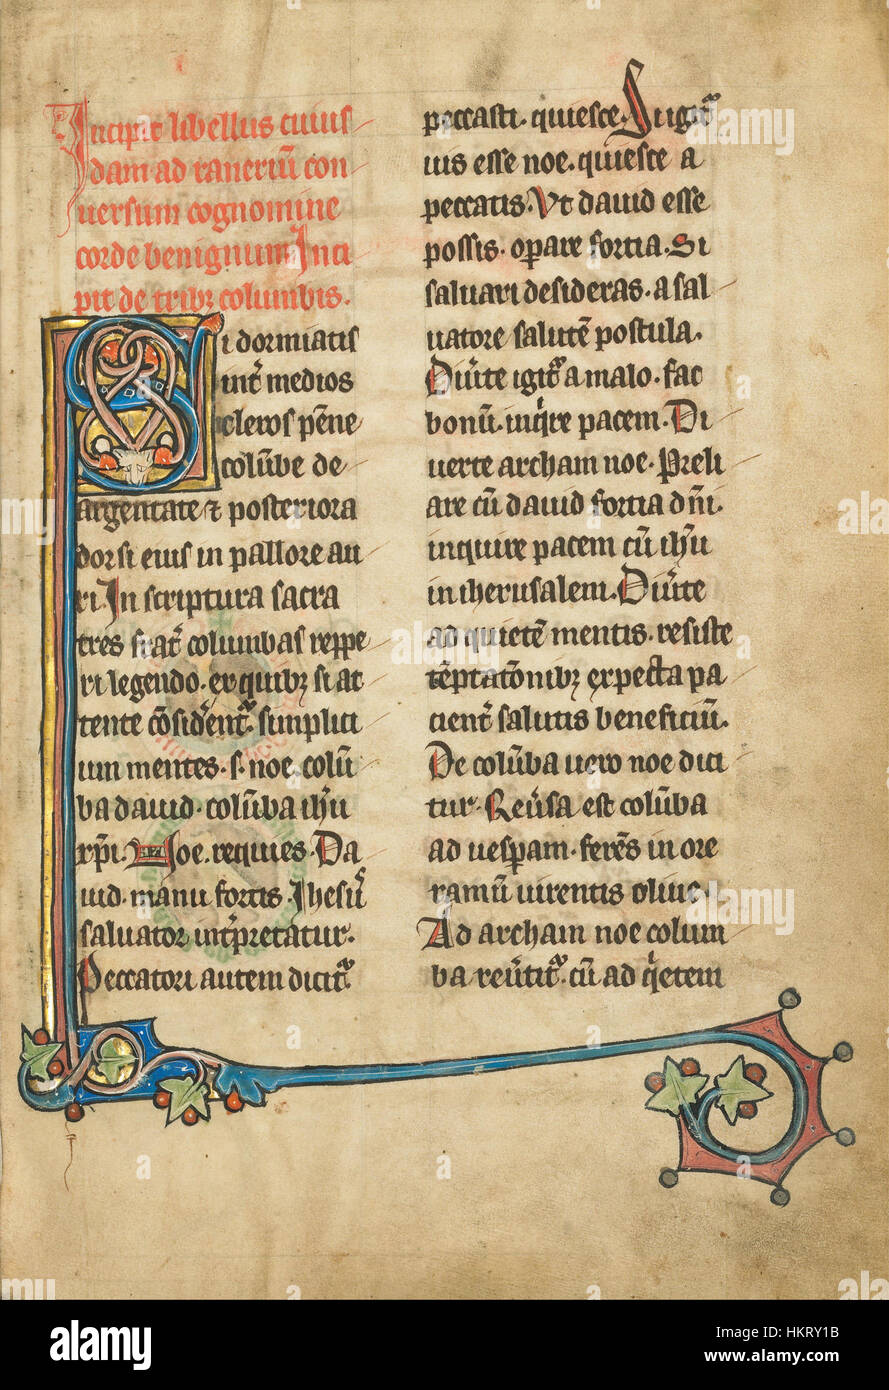 Incipit libellus cuius
dam ad raneriū con
uersum cognomine
corde benignum Inci
pit de tribꝫ columbis.
Si dormiatis
int̾ medios
cleros pēne
colūbe de
argentate ⁊ posteriora
dorsi eius in pallore au
ri. In scriptura sacra
tres frat̾ columbas reppe
ri legendo. ex quibꝫ si at
tente cōsid̾ent̾ simplici
um mentes. s. noe. colū
ba dauid. colūba ih̄u
xp̄i. Noe. requies. Da
uid. manu fortis. Ihesu᷒
saluator int̾pretatur.
Peccatori autem dicit᷑
peccasti. quiesce. Si igit᷑
uis esse noe. quiesce a
peccatis. Vt dauid esse
possis. opare fortia. Si
saluari desideras. a sal
uatore salutē postula.
Diu̾te igit᷑ a malo. fac
bonū. inqͥre pacem. Di
uerte archam noe. Preli
are cū dauid fortia dn̄i.
inquire pacem cū ih̄u
in iherusalem. Diu̾te
ad quietē mentis. resiste
tēptatōnibꝫ expecta pa
cient̾ salutis beneficiū.
De colūba uero noe dici
tur. Reu̾sa est colūba
ad uesp̄am. ferēs in ore
ramū uirentis oliue.
Ad archam noe colum
ba reu̾tit᷑. cū ad qͥetem
alamy
alamy stock photo
HKRY1B
www.alamy.com